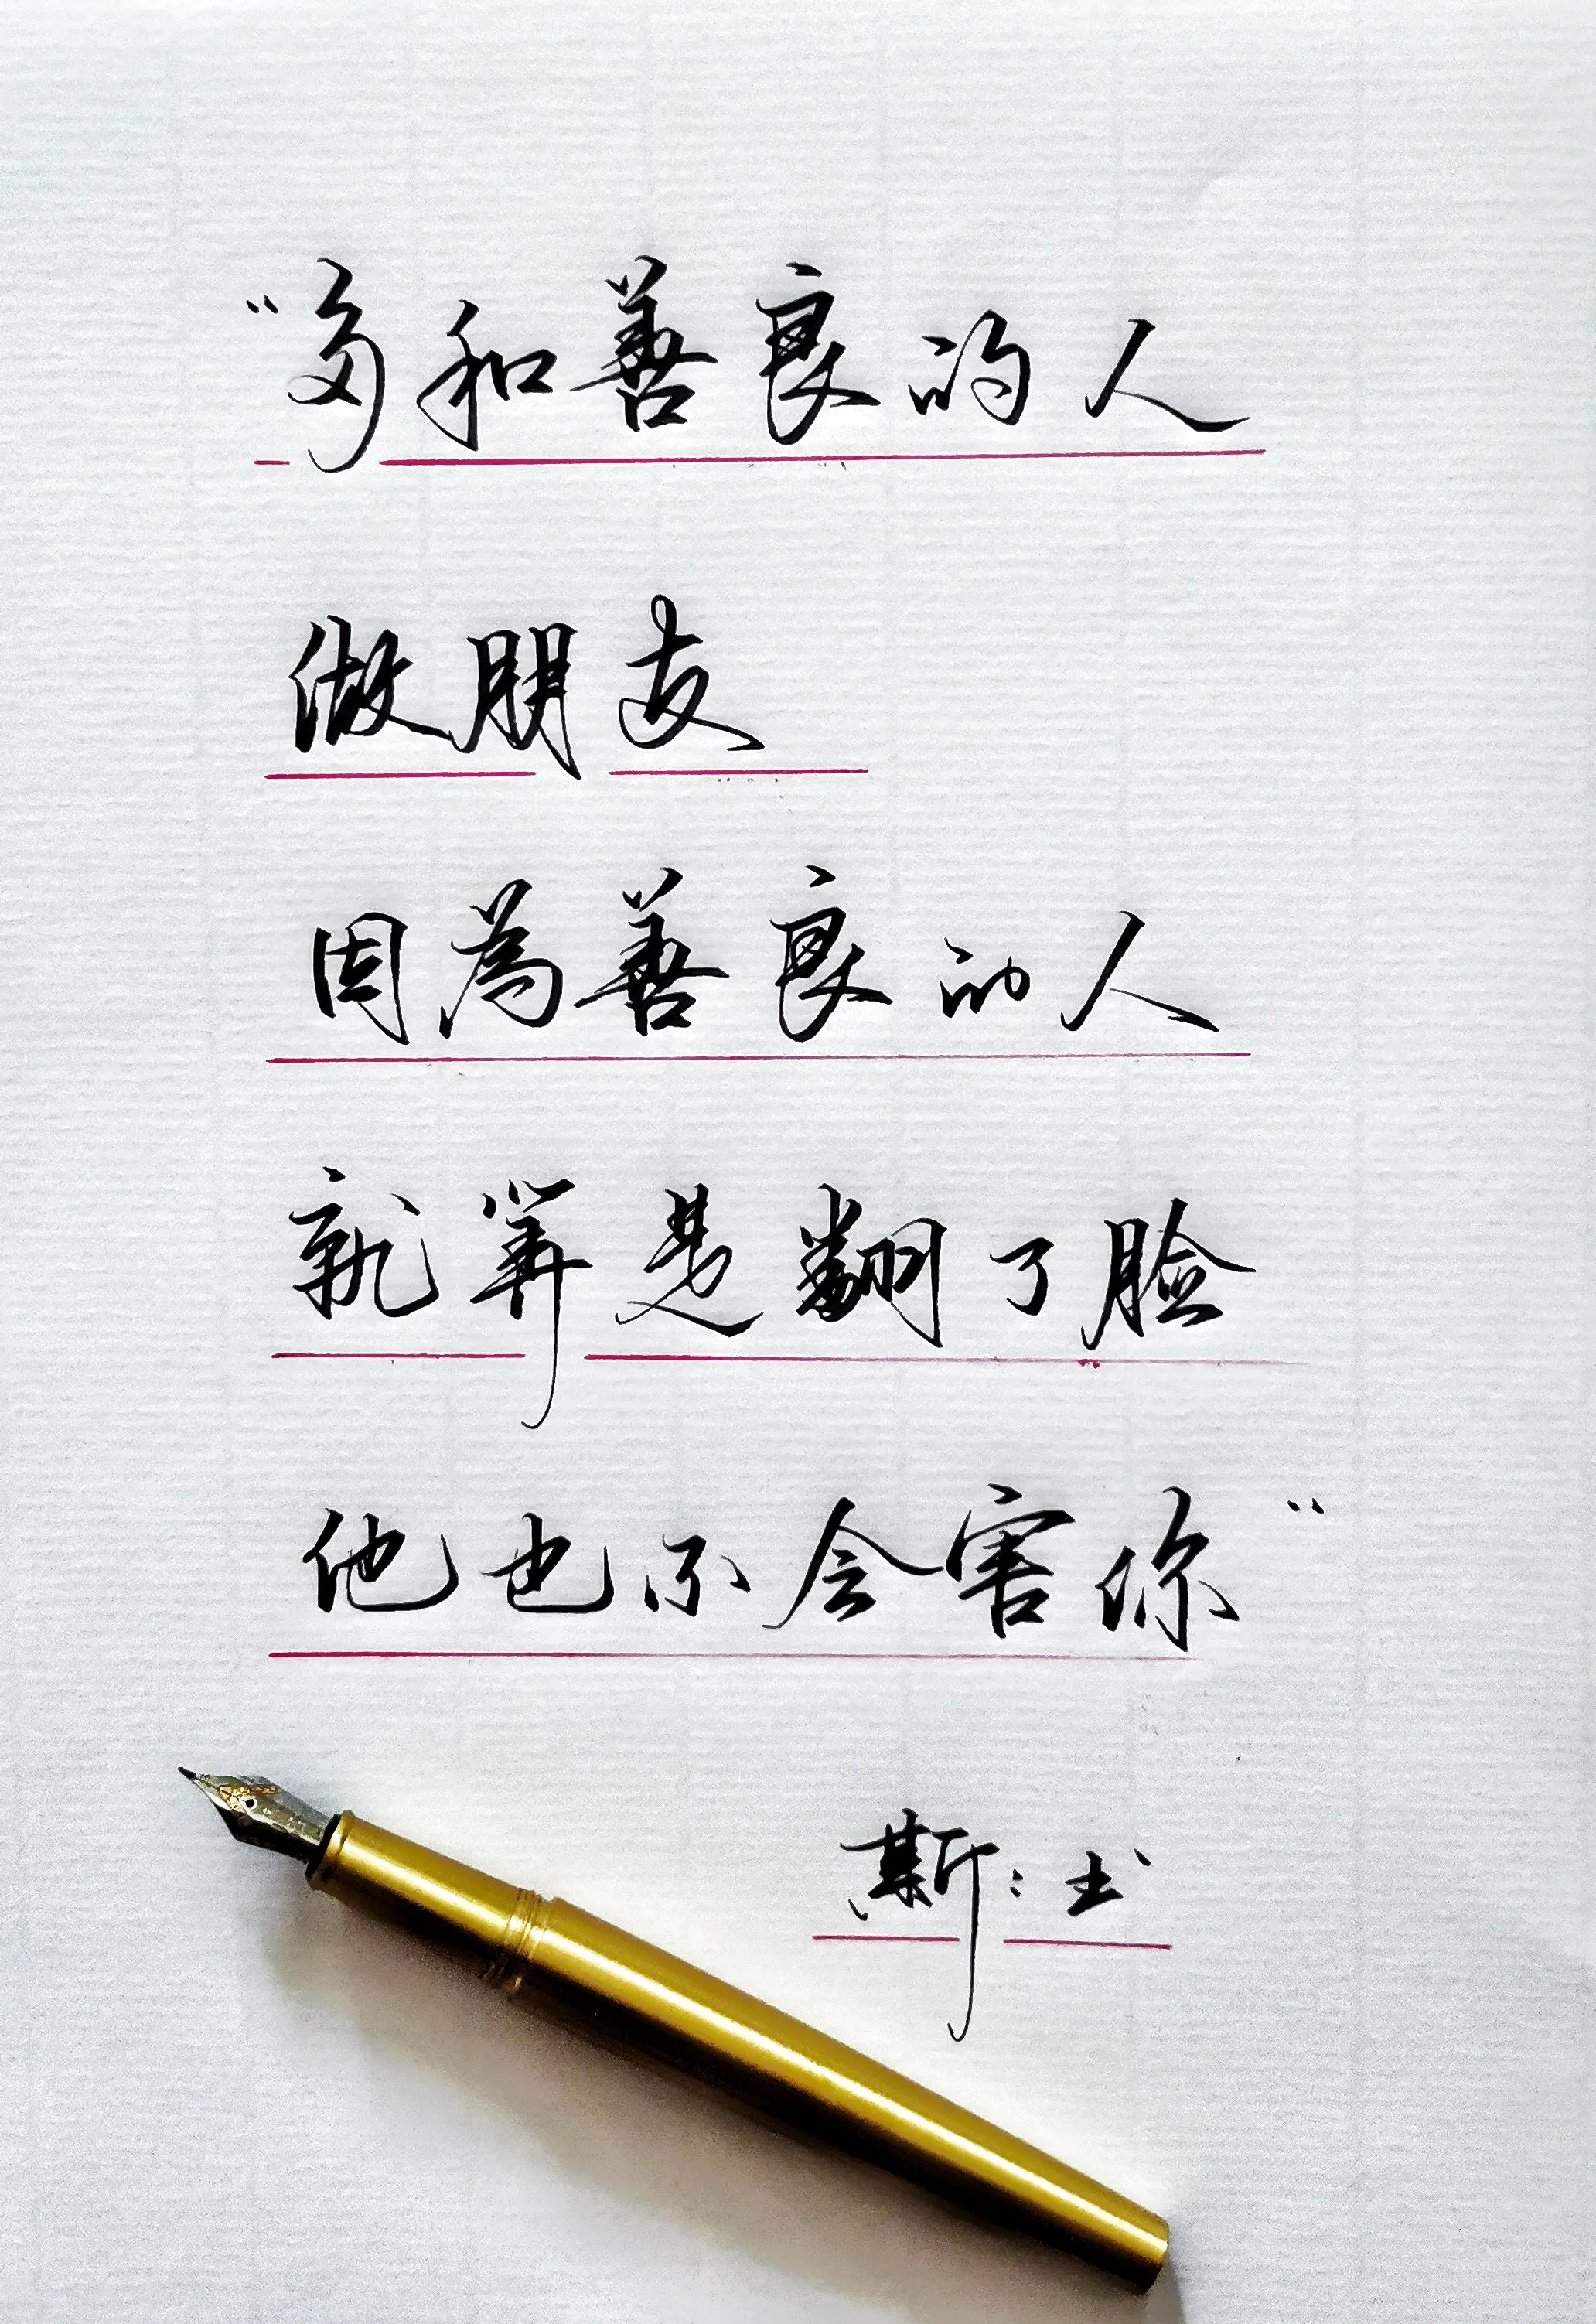 “多和善良的人
做朋友
因為善良的人
就算是翻了脸
他也不会害你”
斯:书